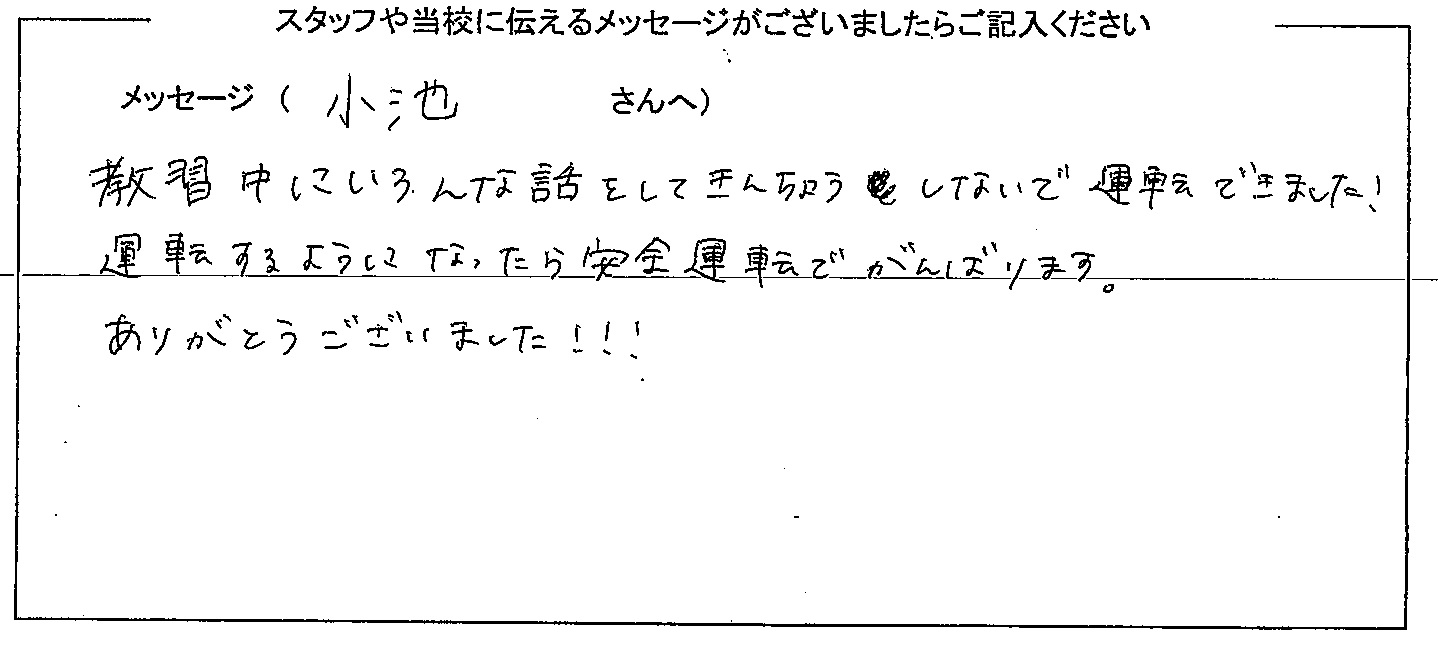 スタッフや当校に伝えるメッセージがございましたらご記入ください
メッセージ( 小池 さんへ)
教習中にいろんな話をしてきんちょうもしないで運転できました!
運転するようになったら安全運転でがんばります。
ありがとうございました!!!